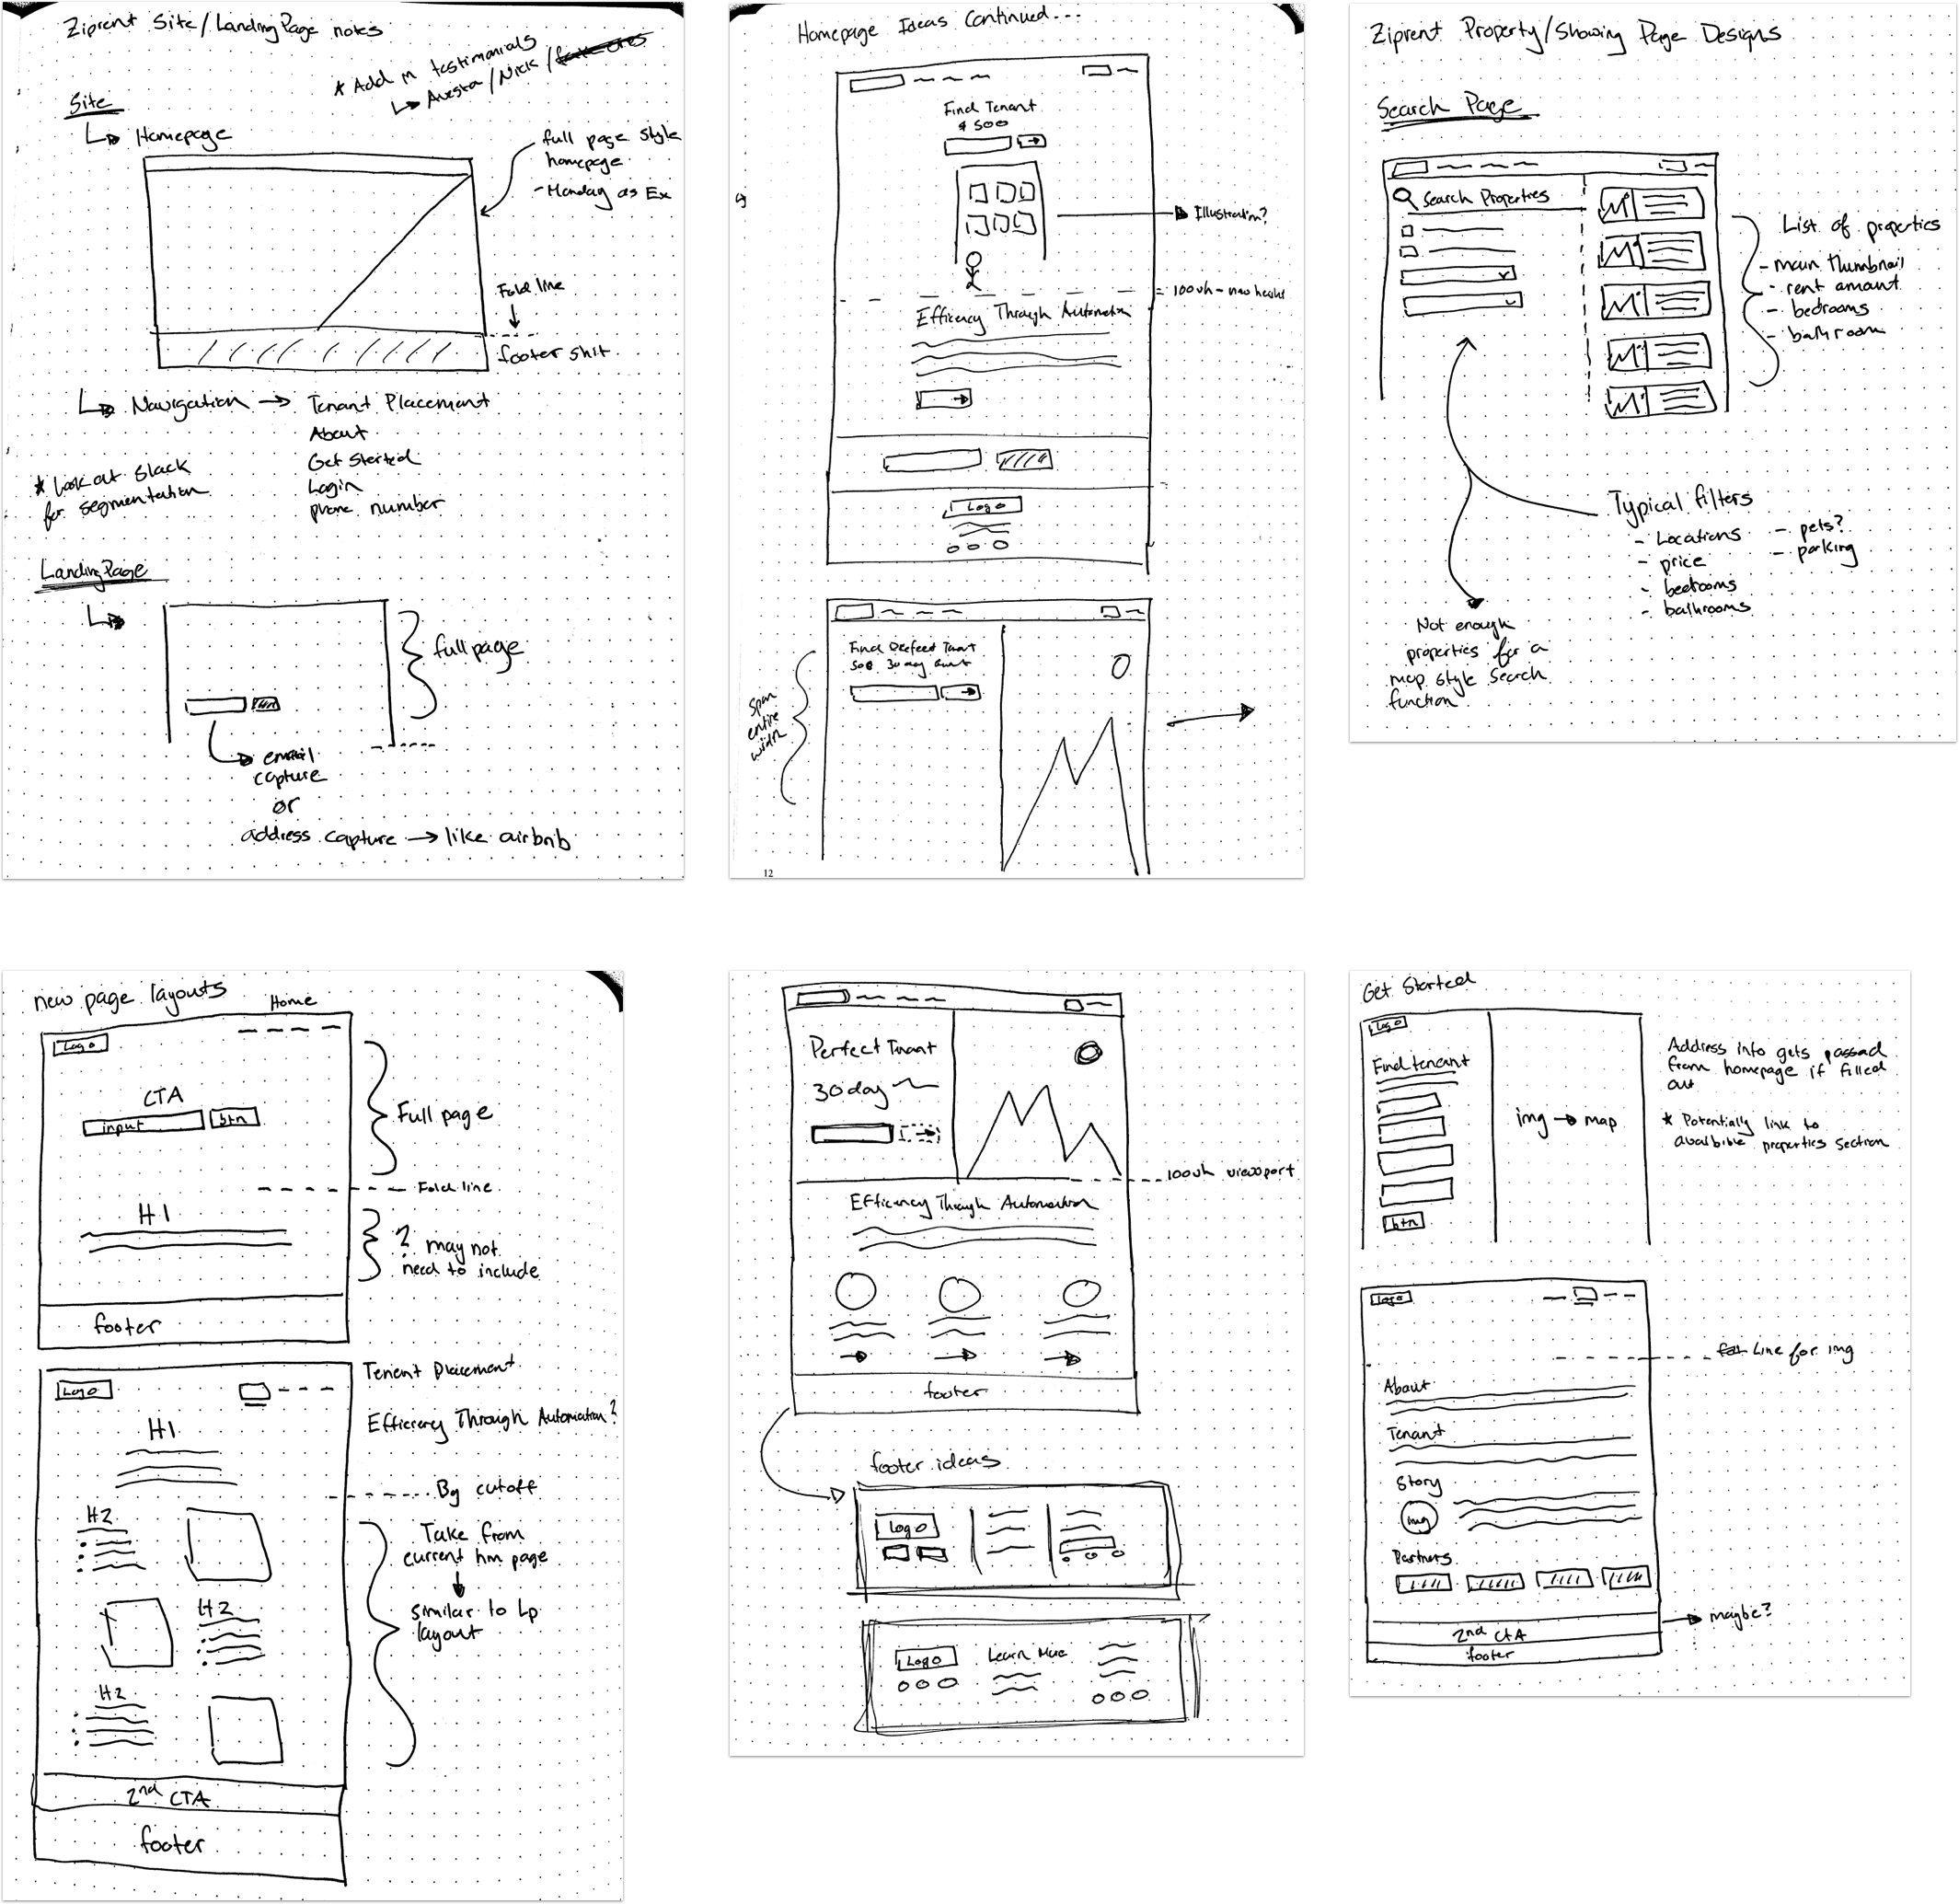 Ziprent Site/Landing Page notes
* Add in testimonials
↳ Avesta/Nick/
Site
↳ Homepage
full page style
homepage
- Monday as Ex
Fold line
footer shit
↳ Navigation → Tenant Placement
About
Get Started
Login
phone number
* Look at Slack
for segmentation
Landing Page
full page
email
capture
or
address capture → like airbnb
Homepage Ideas Continued...
Find Tenant
$500
Illustration?
100vh - nav height
Efficency Through Automation
Logo
Find Perfect Tenant
500 30 day
Span
entire
width
12
Ziprent Property/Showing Page Designs
Search Page
Search Properties
List of properties
- main thumbnail
- rent amount
- bedrooms
- bathroom
Typical filters
- Locations
- price
- bedrooms
- bathrooms
- pets?
- parking
Not enough
properties for a
map style search
function
new page layouts
Home
Logo
CTA
input
btn
Full page
Fold line
H1
? may not
need to include
footer
Tenent Placement
Logo
Efficency Through Automation?
H1
Bg cutoff
H2
Take from
current hm page
H2
similar to Lp
layout
H2
2nd CTA
footer
Perfect Tenant
30 day
100vh viewport
Efficency Through Automation
footer
footer ideas
Logo
Logo
Learn More
Get Started
Logo
Find tenant
btn
img → map
Address info gets passed
from homepage if filled
out
* Potentially link to
avalbible properties section
Logo
Line for img
About
Tenant
Story
img
Partners
maybe?
2nd CTA
footer